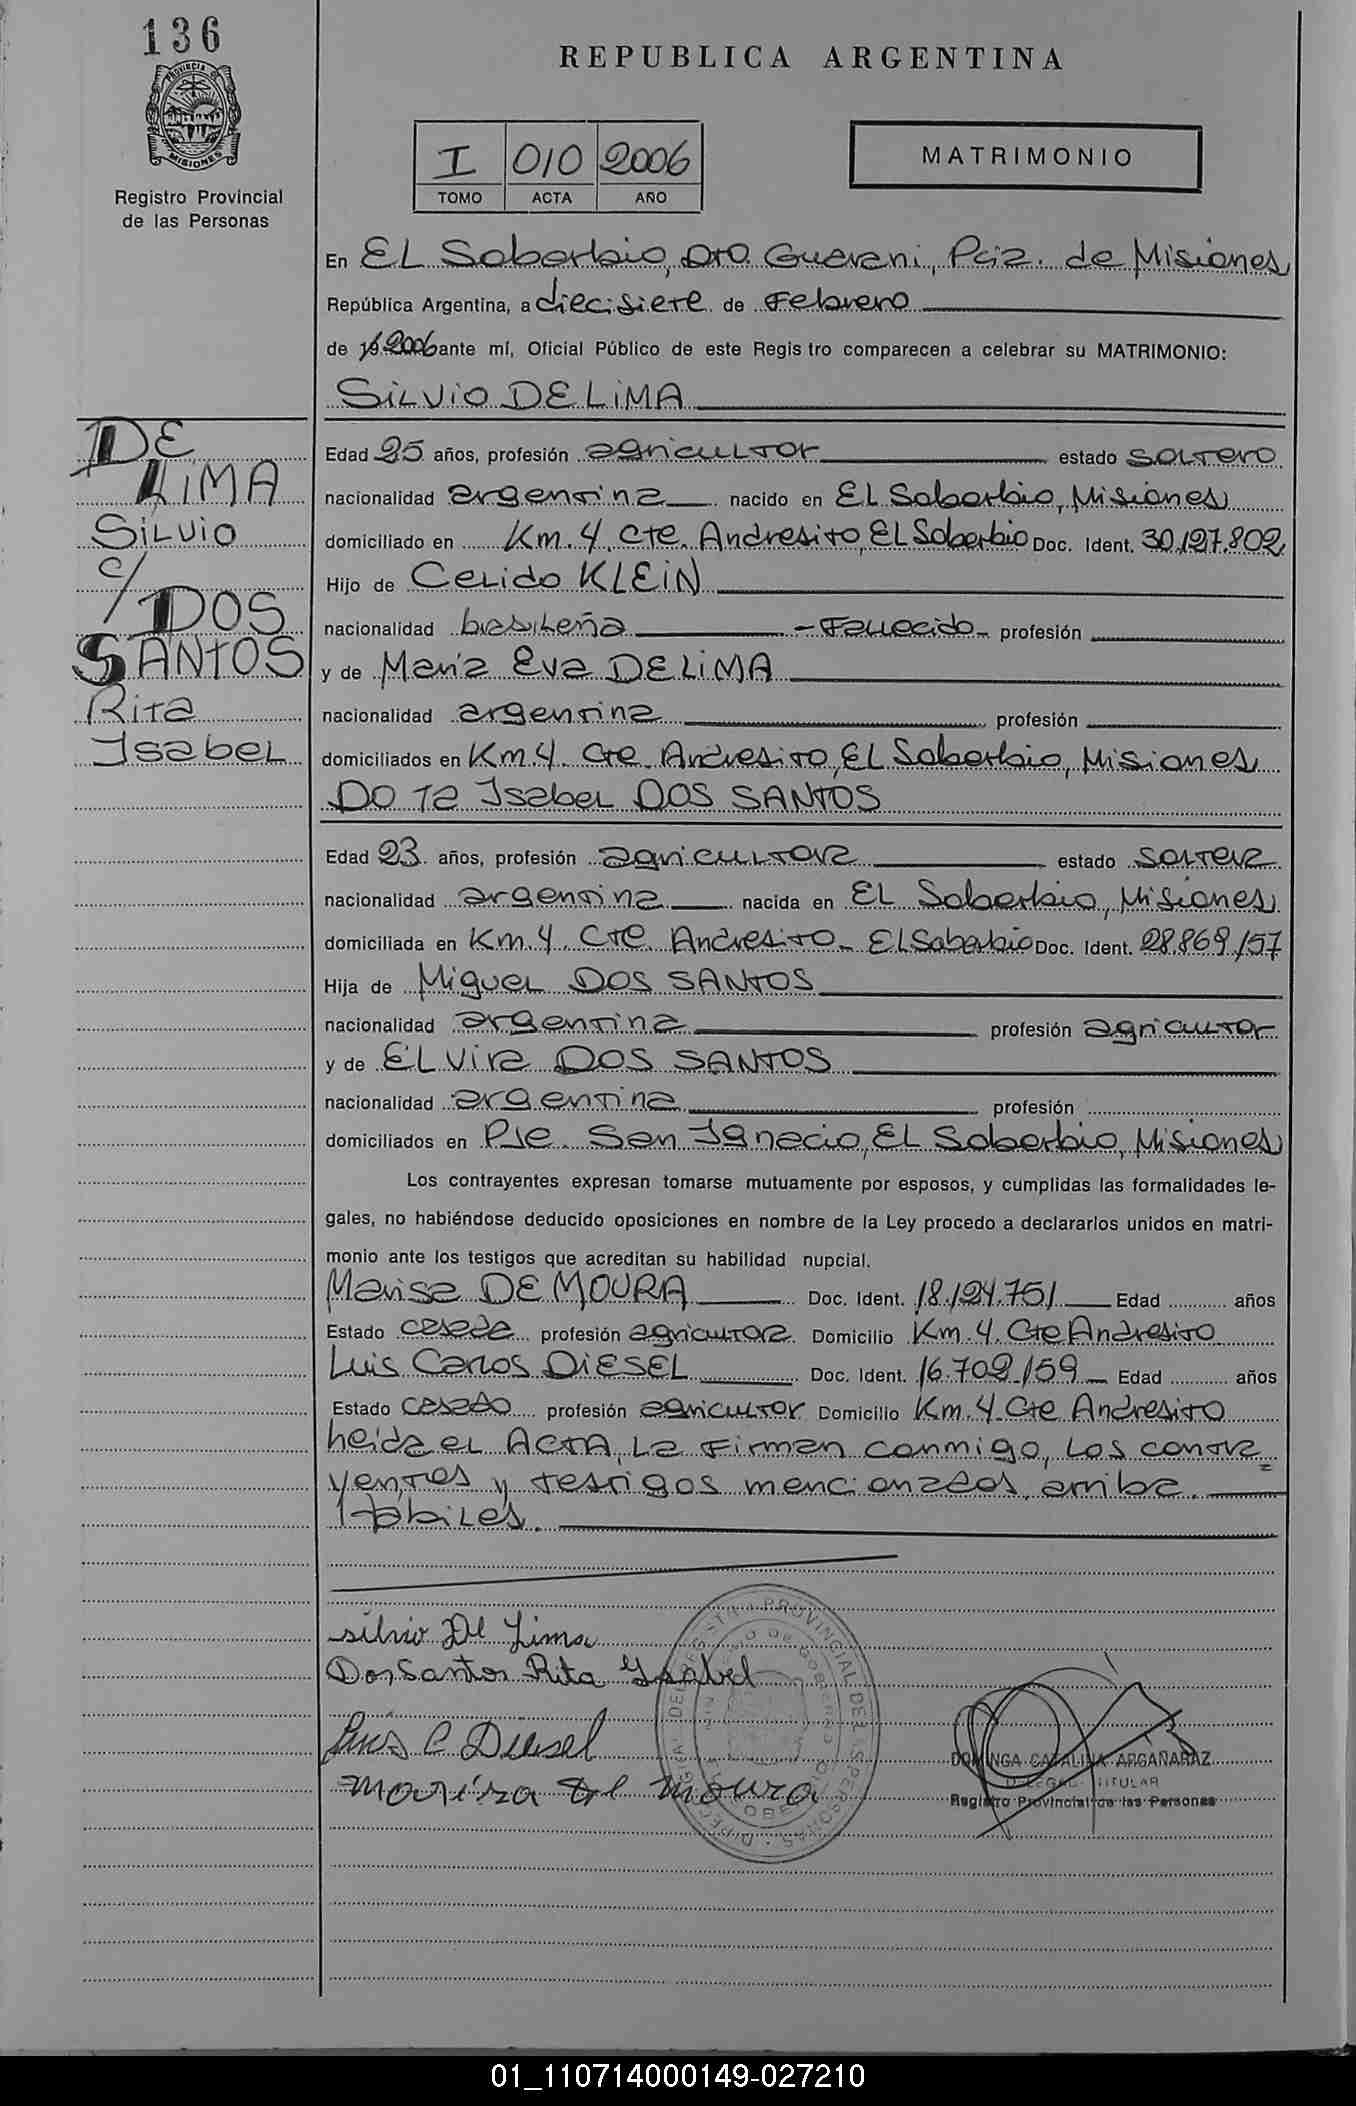 136
PROVINCIA DE
MISIONES
Registro Provincial
de las Personas
REPUBLICA ARGENTINA
I 010 2006
TOMO ACTA AÑO
MATRIMONIO
En EL Soberbio, Dto. Guarani, Pcia. de Misiones
República Argentina, a diecisiete de Febrero
de 19 2006 ante mí, Oficial Público de este Registro comparecen a celebrar su MATRIMONIO:
SiLViO DE LiMA
DE
LiMA
SiLViO
c/
DOS
SANTOS
Rita
Isabel
Edad 25 años, profesión agricultor estado soltero
nacionalidad argentina nacido en EL Soberbio, Misiones
domiciliado en Km. 4. Cte. Andresito, EL Soberbio Doc. Ident. 30.127.802
Hijo de Celido KLEiN
nacionalidad brasileña - Fallecido - profesión
y de Maria Eva DE LiMA
nacionalidad argentina profesión
domiciliados en Km. 4. Cte. Andresito, EL Soberbio, Misiones
Isabel DOS SANTOS
Edad 23 años, profesión agricultora estado soltera
nacionalidad argentina nacida en EL Soberbio, Misiones
domiciliada en Km. 4. Cte. Andresito - EL Soberbio Doc. Ident. 28.869.157
Hija de Miguel DOS SANTOS
nacionalidad argentina profesión agricultor
y de ELVira DOS SANTOS
nacionalidad argentina profesión
domiciliados en Pje. San Ignacio, EL Soberbio, Misiones
Los contrayentes expresan tomarse mutuamente por esposos, y cumplidas las formalidades le-
gales, no habiéndose deducido oposiciones en nombre de la Ley procedo a declararlos unidos en matri-
monio ante los testigos que acreditan su habilidad nupcial.
Marisa DE MOURA Doc. Ident. 18.124.751 Edad años
Estado casada profesión agricultora Domicilio Km. 4. Cte Andresito
Luis Carlos DiESEL Doc. Ident. 16.709.159 Edad años
Estado casado profesión agricultor Domicilio Km. 4. Cte Andresito
heida el ACTA, La Firman conmigo, Los contra=
yentes y testigos mencionados arriba.
Habiles.
silvio De Lima
Dos Santos Rita Ysabel
Luis C Diesel
Mariza de Moura
DOMINGA CATALINA ARGAÑARAZ
DELEGADA TITULAR
Registro Provincial de las Personas
01_110714000149-027210